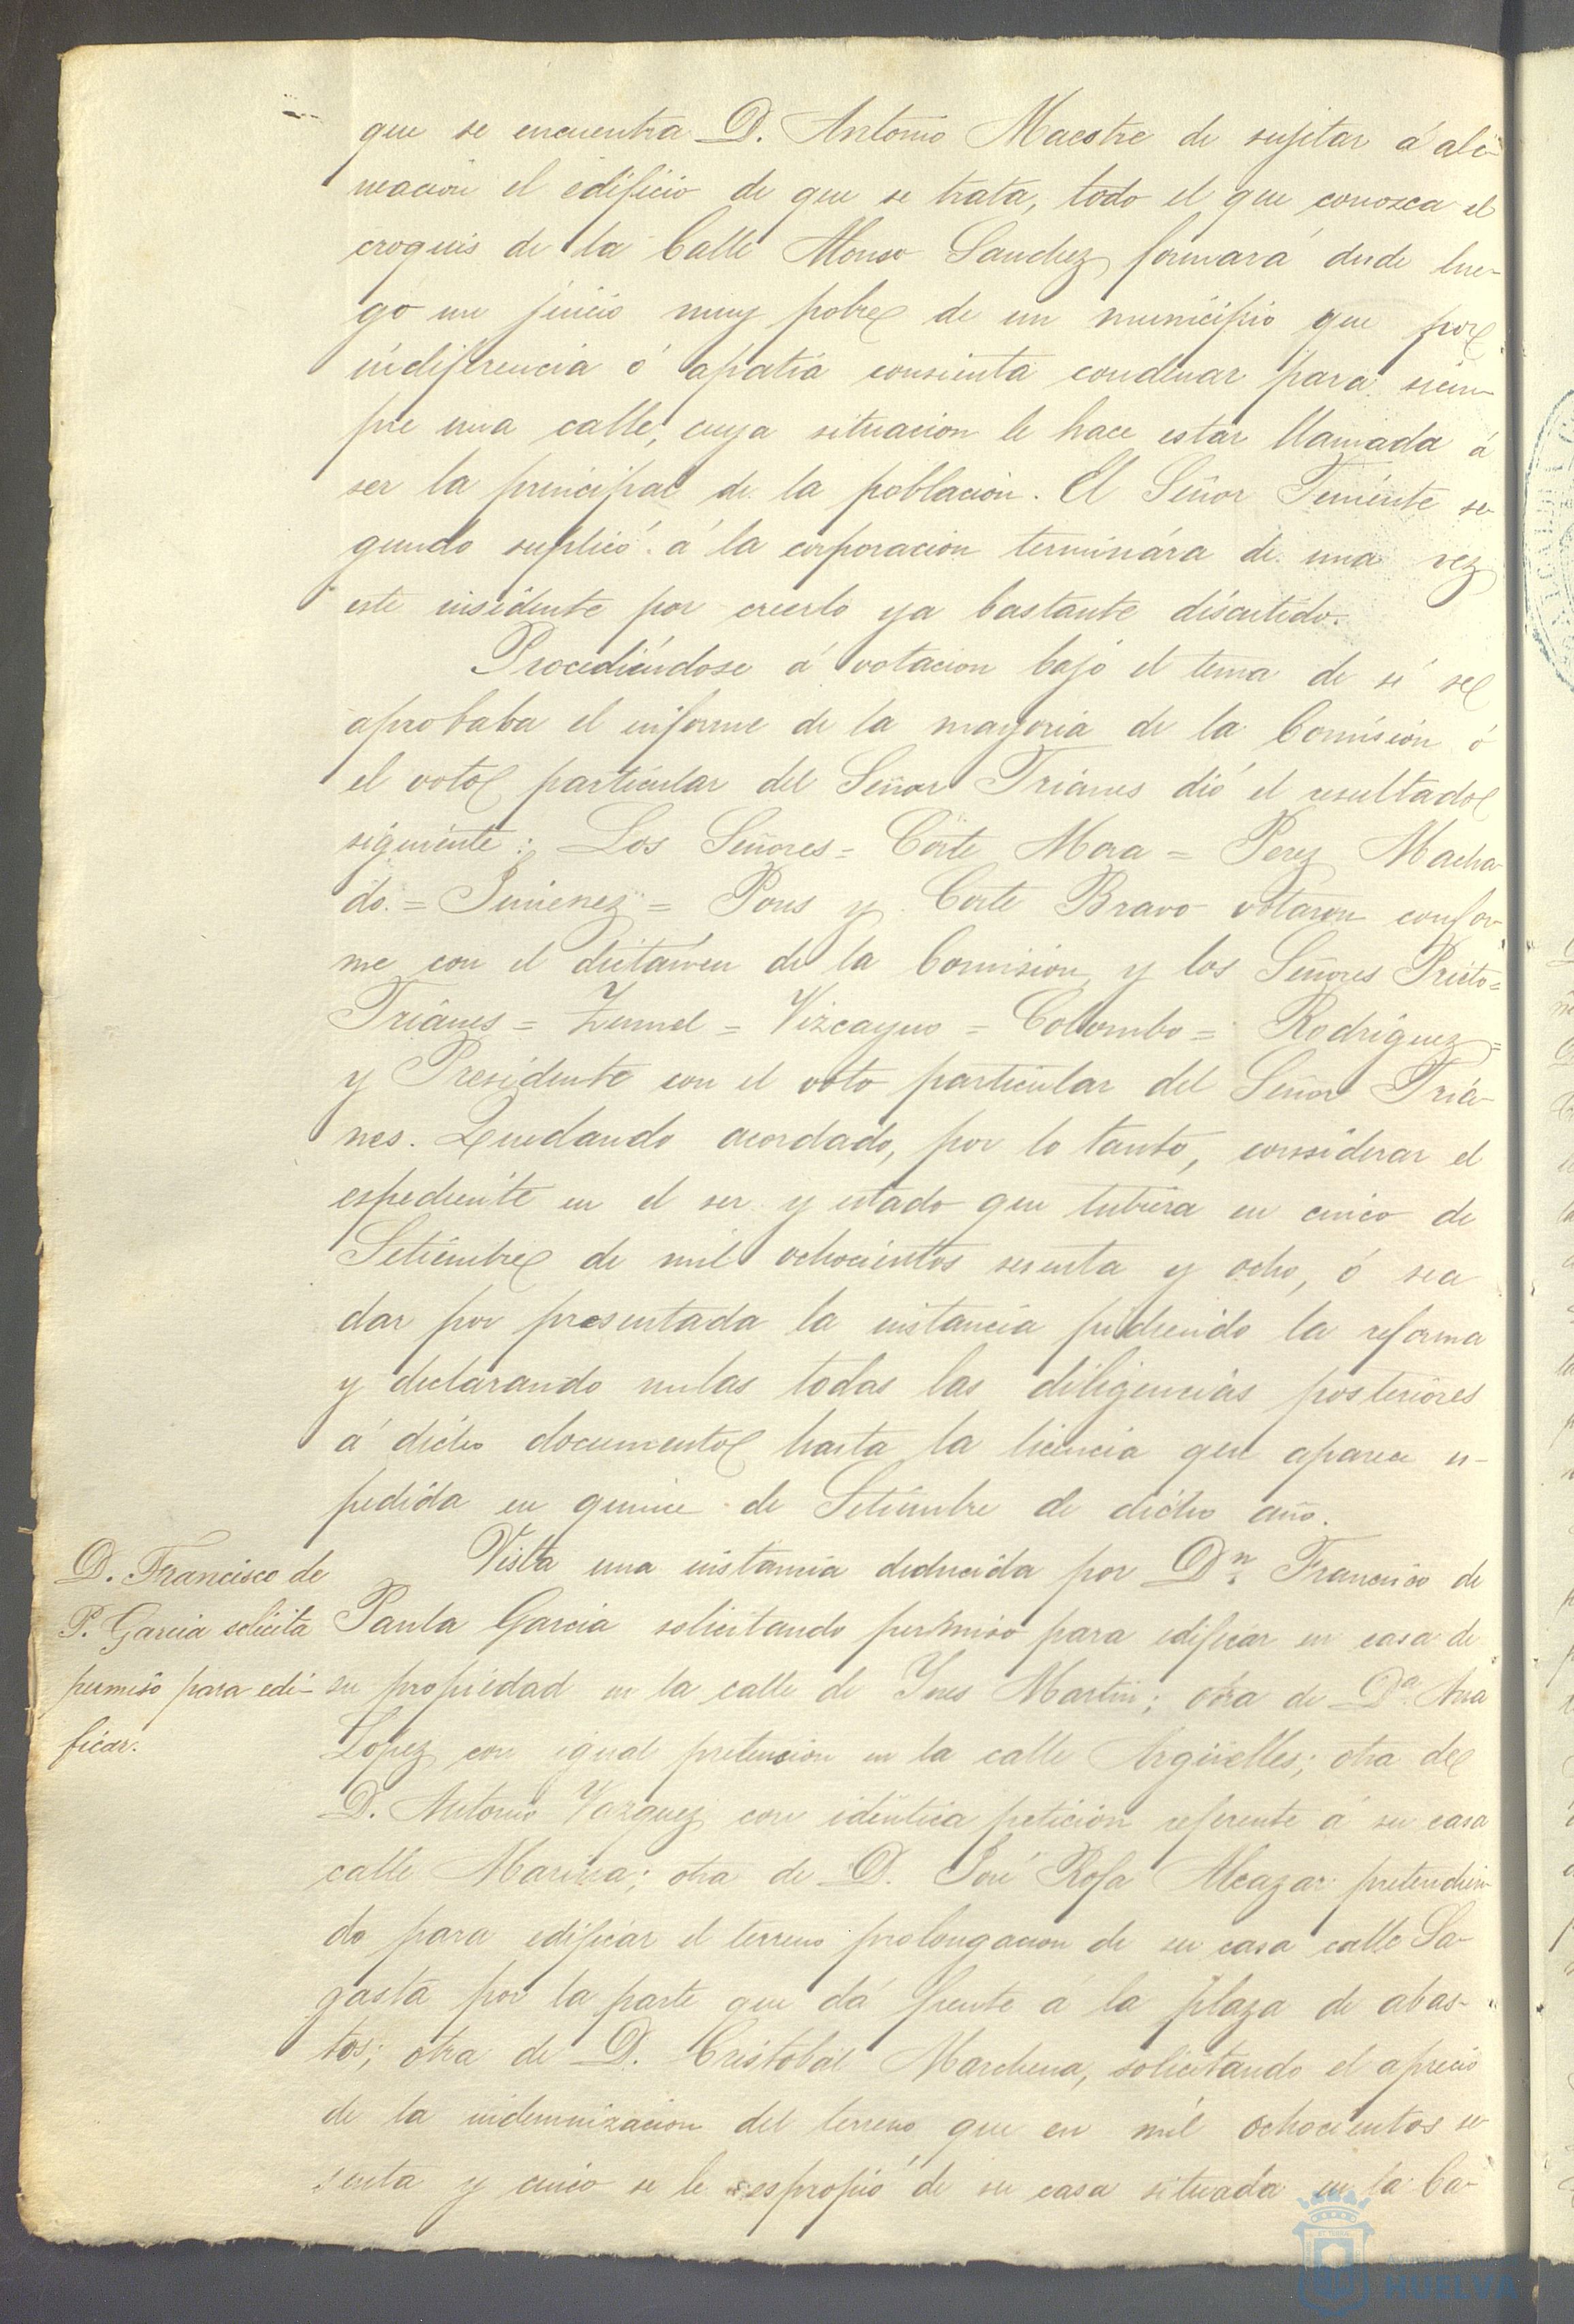 que se encuentra D. Antonio Maestre de sujetar á ali-
neacion el edificio de que se trata, todo el que conozca el
croquis de la Calle Alonso Sanchez formará desde lue-
go un juicio muy pobre de un municipio que por
indiferencia ó apatia consienta condenar para siem-
pre una calle, cuya situacion le hace estar llamada á
ser la principal de la poblacion. El Señor Teniente se-
gundo suplicó á la corporacion terminára de una vez
este insidente por creerlo ya bastante discutido.
Procediéndose á votacion bajo el tema de si se
aprobaba el informe de la mayoria de la Comision ó
el voto particular del Señor Triánes dió el resultado
siguiente: Los Señores = Córte Mora = Perez Macha-
do = Jimenez = Pons y Corte Bravo votaron confor-
me con el dictámen de la Comision y los Señores Prieto =
Triánes = = Vizcayno = Colombo = Rodriguez =
y Presidente con el voto particular del Señor Triá-
nes. Quedando acordado, por lo tanto, considerar el
espediente en el ser y estado que tubiera en cinco de
Setiembre de mil ochocientos sesenta y ocho, ó sea
dar por presentada la instancia pidiendo la reforma
y declarando nulas todas las diligencias posteriores
á dicho documento hasta la licencia que aparece es-
pedida en quince de Setiembre de dicho año.
D. Francisco de
P. Garcia solicita
permiso para edi-
ficar.
Vista una instancia deducida por Dn. Francisco de
Paula Garcia solicitando permiso para edificar en casa de
su propiedad en la calle de Ynes Martin; otra de Da. Ana
Lopez con igual pretension en la calle Argüelles; otra de
D. Antonio Vazquez con idéntica peticion referente á su casa
calle Marina; otra de D. José Rofa Alcazar pretendien-
do para edificar el terreno prolongacion de su casa calle Sa-
gasta por la parte que dá frente á la plaza de abas-
tos; otra de D. Cristobal Marchena, solicitando el aprecio
de la indemnizacion del terreno que en mil ochocientos se-
senta y cinco se le espropió de su casa situada en la Ca-
HUELVA